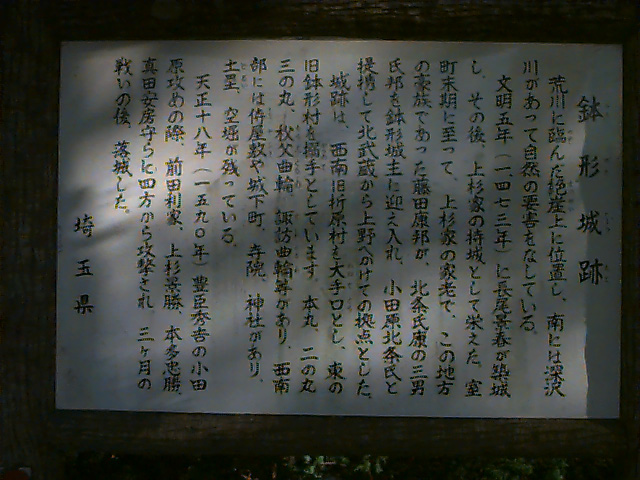 鉢形城跡
荒川に臨んだ絶崖上に位置し、南には深沢
川があって自然の要害をなしている。
文明五年(一四七三年)に長尾景春が築城
し、その後、上杉家の持城として栄えた。室
町末期に至って、上杉家の家老で、この地方
の豪族であった藤田康邦が、北条氏康の三男
氏邦を鉢形城主に迎え入れ、小田原北条氏と
提携して北武蔵から上野へかけての拠点とした。
城跡は、西南旧折原村を大手口とし、東の
旧鉢形村を搦手としています。本丸、二の丸
三の丸、秩父曲輪、諏訪曲輪等があり、西南
部には侍屋敷や城下町、寺院、神社があり、
土塁、空堀が残っている。
天正十八年(一五九〇年)豊臣秀吉の小田
原攻めの際、前田利家、上杉景勝、本多忠勝、
真田安房守らに四方から攻撃され、三ヶ月の
戦いの後、落城した。
埼玉県